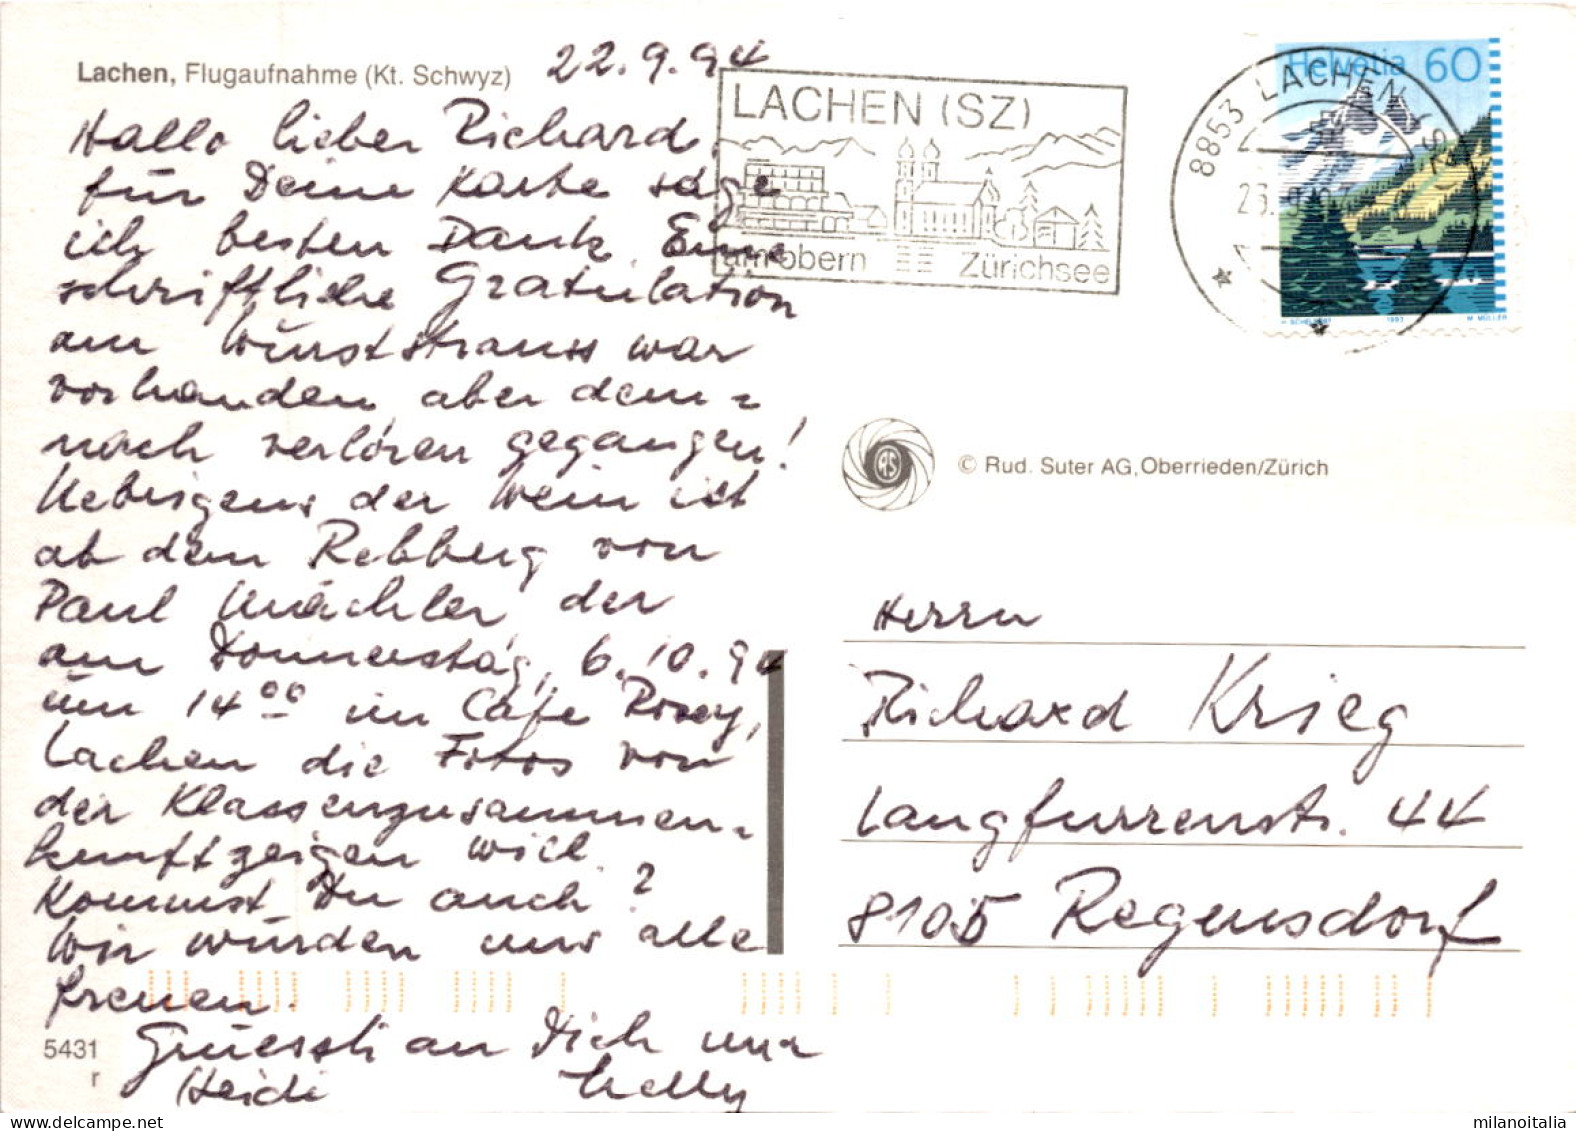 Lachen, Flugaufnahme (Kt. Schwyz)
22.9.94
Hallo lieber Richard,
für Deine Karte sage
ich besten Dank. Eine
schriftliche Gratulation
am Wurststrauss war
vorhanden, aber dem-
nach verloren gegangen!
Uebrigens der Wein ist
ab dem Rebberg von
Paul Mächler der
am Donnerstag, 6.10.94
um 14⁰⁰ im Café Roxy,
Lachen die Fotos von
der Klassenzusammen-
kunft zeigen will.
Kommst Du auch?
Wir würden uns alle
freuen.
Grüessli an Dich und
Heidi Nelly
5431
r
LACHEN (SZ)
am obern Zürichsee
8853 LACHEN SZ
Helvetia 60
H. SCHELBERT 1993 M. MÜLLER
RS
© Rud. Suter AG, Oberrieden/Zürich
Herrn
Richard Krieg
Langfurrenstr. 44
8105 Regensdorf
milanoitalia